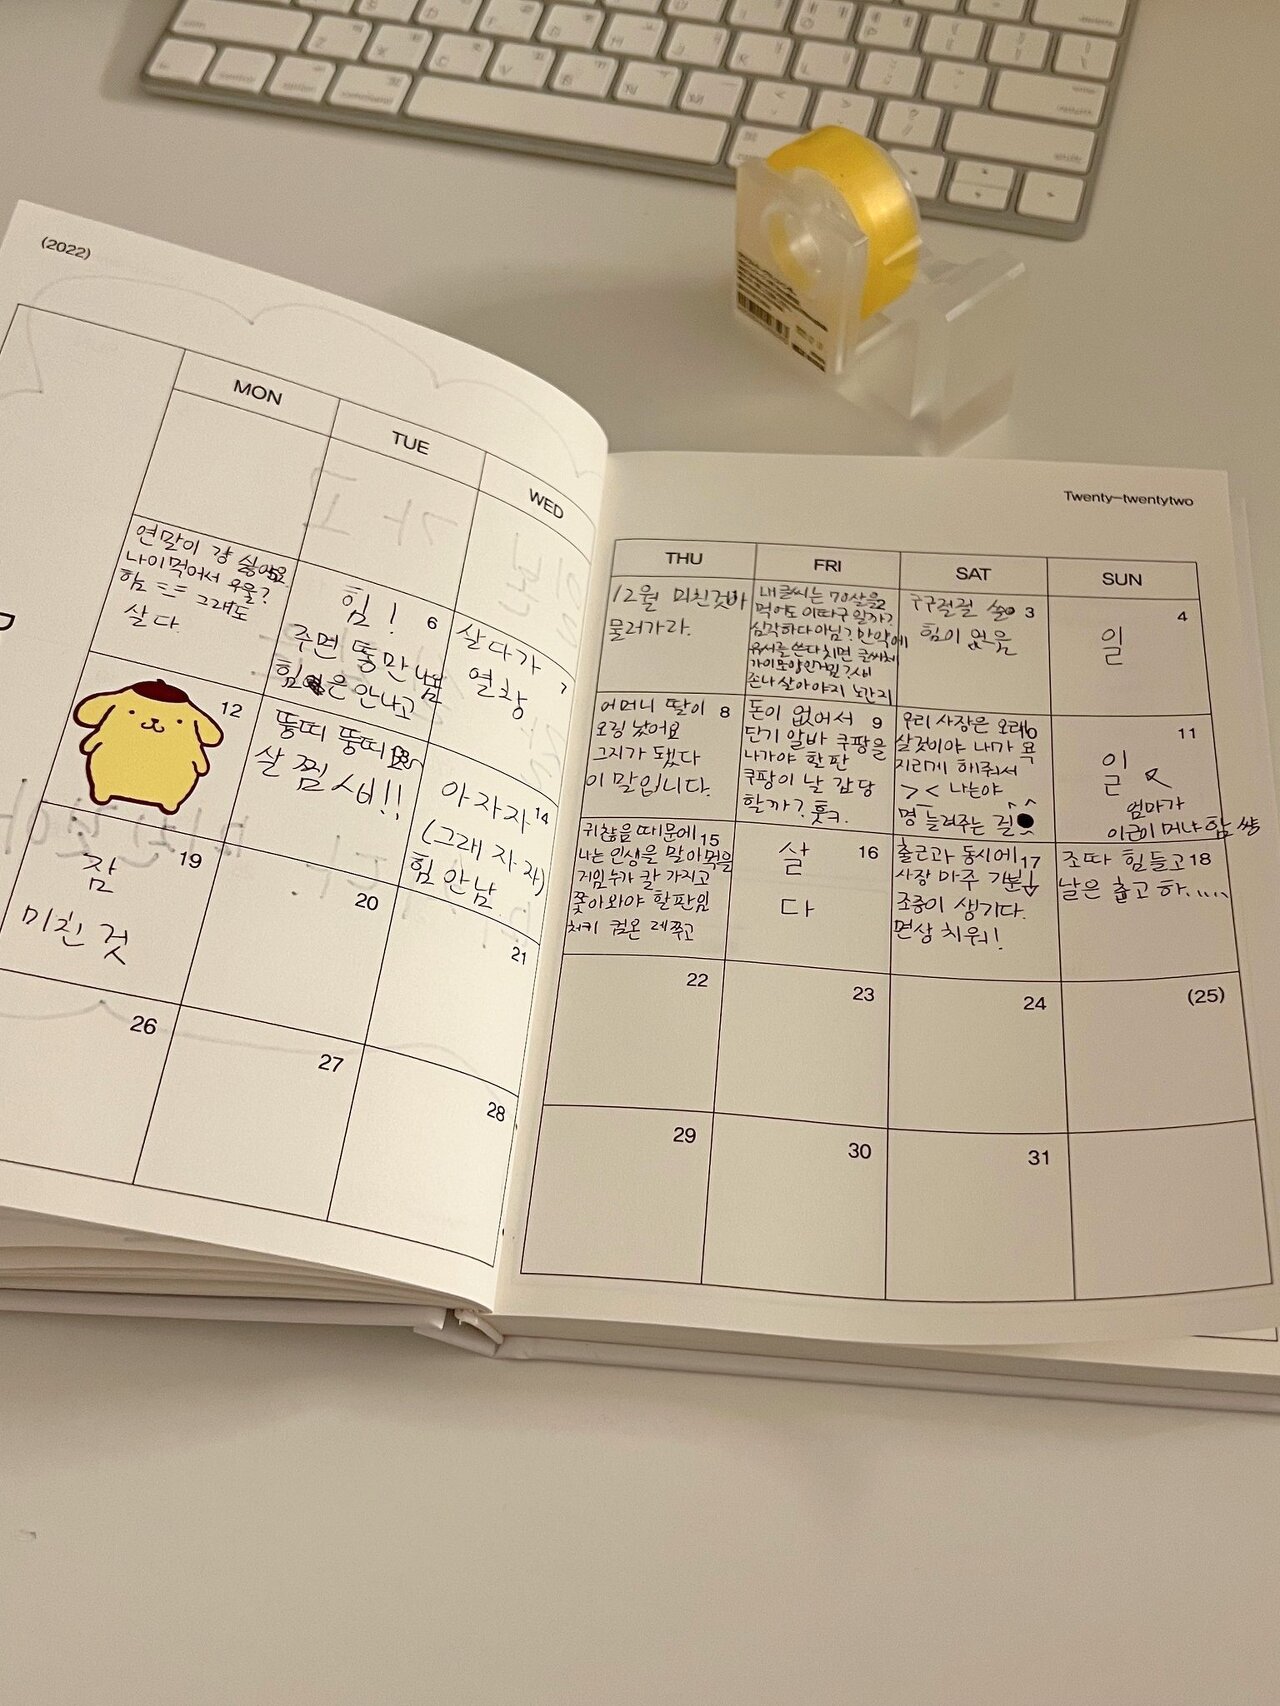 (2022)
MON
TUE
WED
연말이 걍 싫어요
나이먹어서 우울?
힘듬 ㅡㅡ 그래도
살다.
힘! 6
주면 똥만
힘은 안나고
살다가 7
열창
12
뚱띠 뚱띠
살 찜 시비!!
아자자 14
(그래 자자)
힘 안남
19
잠
미친 것
20
21
26
27
28
Twenty-twentytwo
THU
FRI
SAT
SUN
12월 미친것아
물러가라.
내 글씨는 70살을 2
먹어도 이따구 일까?
심각하다 아님? 만약에
유서를 쓴다치면 글씨체
가 이 모양인거임?
존나 살아야지 노간지
구구절절 3
힘이 없음
4
일
어머니 딸이 8
오링 났어요
그지가 됐다
이 말입니다.
돈이 없어서 9
단기 알바 쿠팡을
나가야 할 판
쿠팡이 날 감당
할까? 훗ㅋ.
우리 사장은 오래
살것이야 내가 욕
지리게 해줘서
>< 나는야
명 늘려주는 걸
11
일
엄마가
귀찮음 때문에 15
나는 인생을 말아먹을
거임 누가 칼 가지고
쫓아와야 할판임
처키 컴온 레쭈고
살 16
다
출근과 동시에 17
사장 마주 기분↓
조증이 생기다.
면상 치워!
조따 힘들고 18
날은 춥고 하.....
22
23
24
(25)
29
30
31